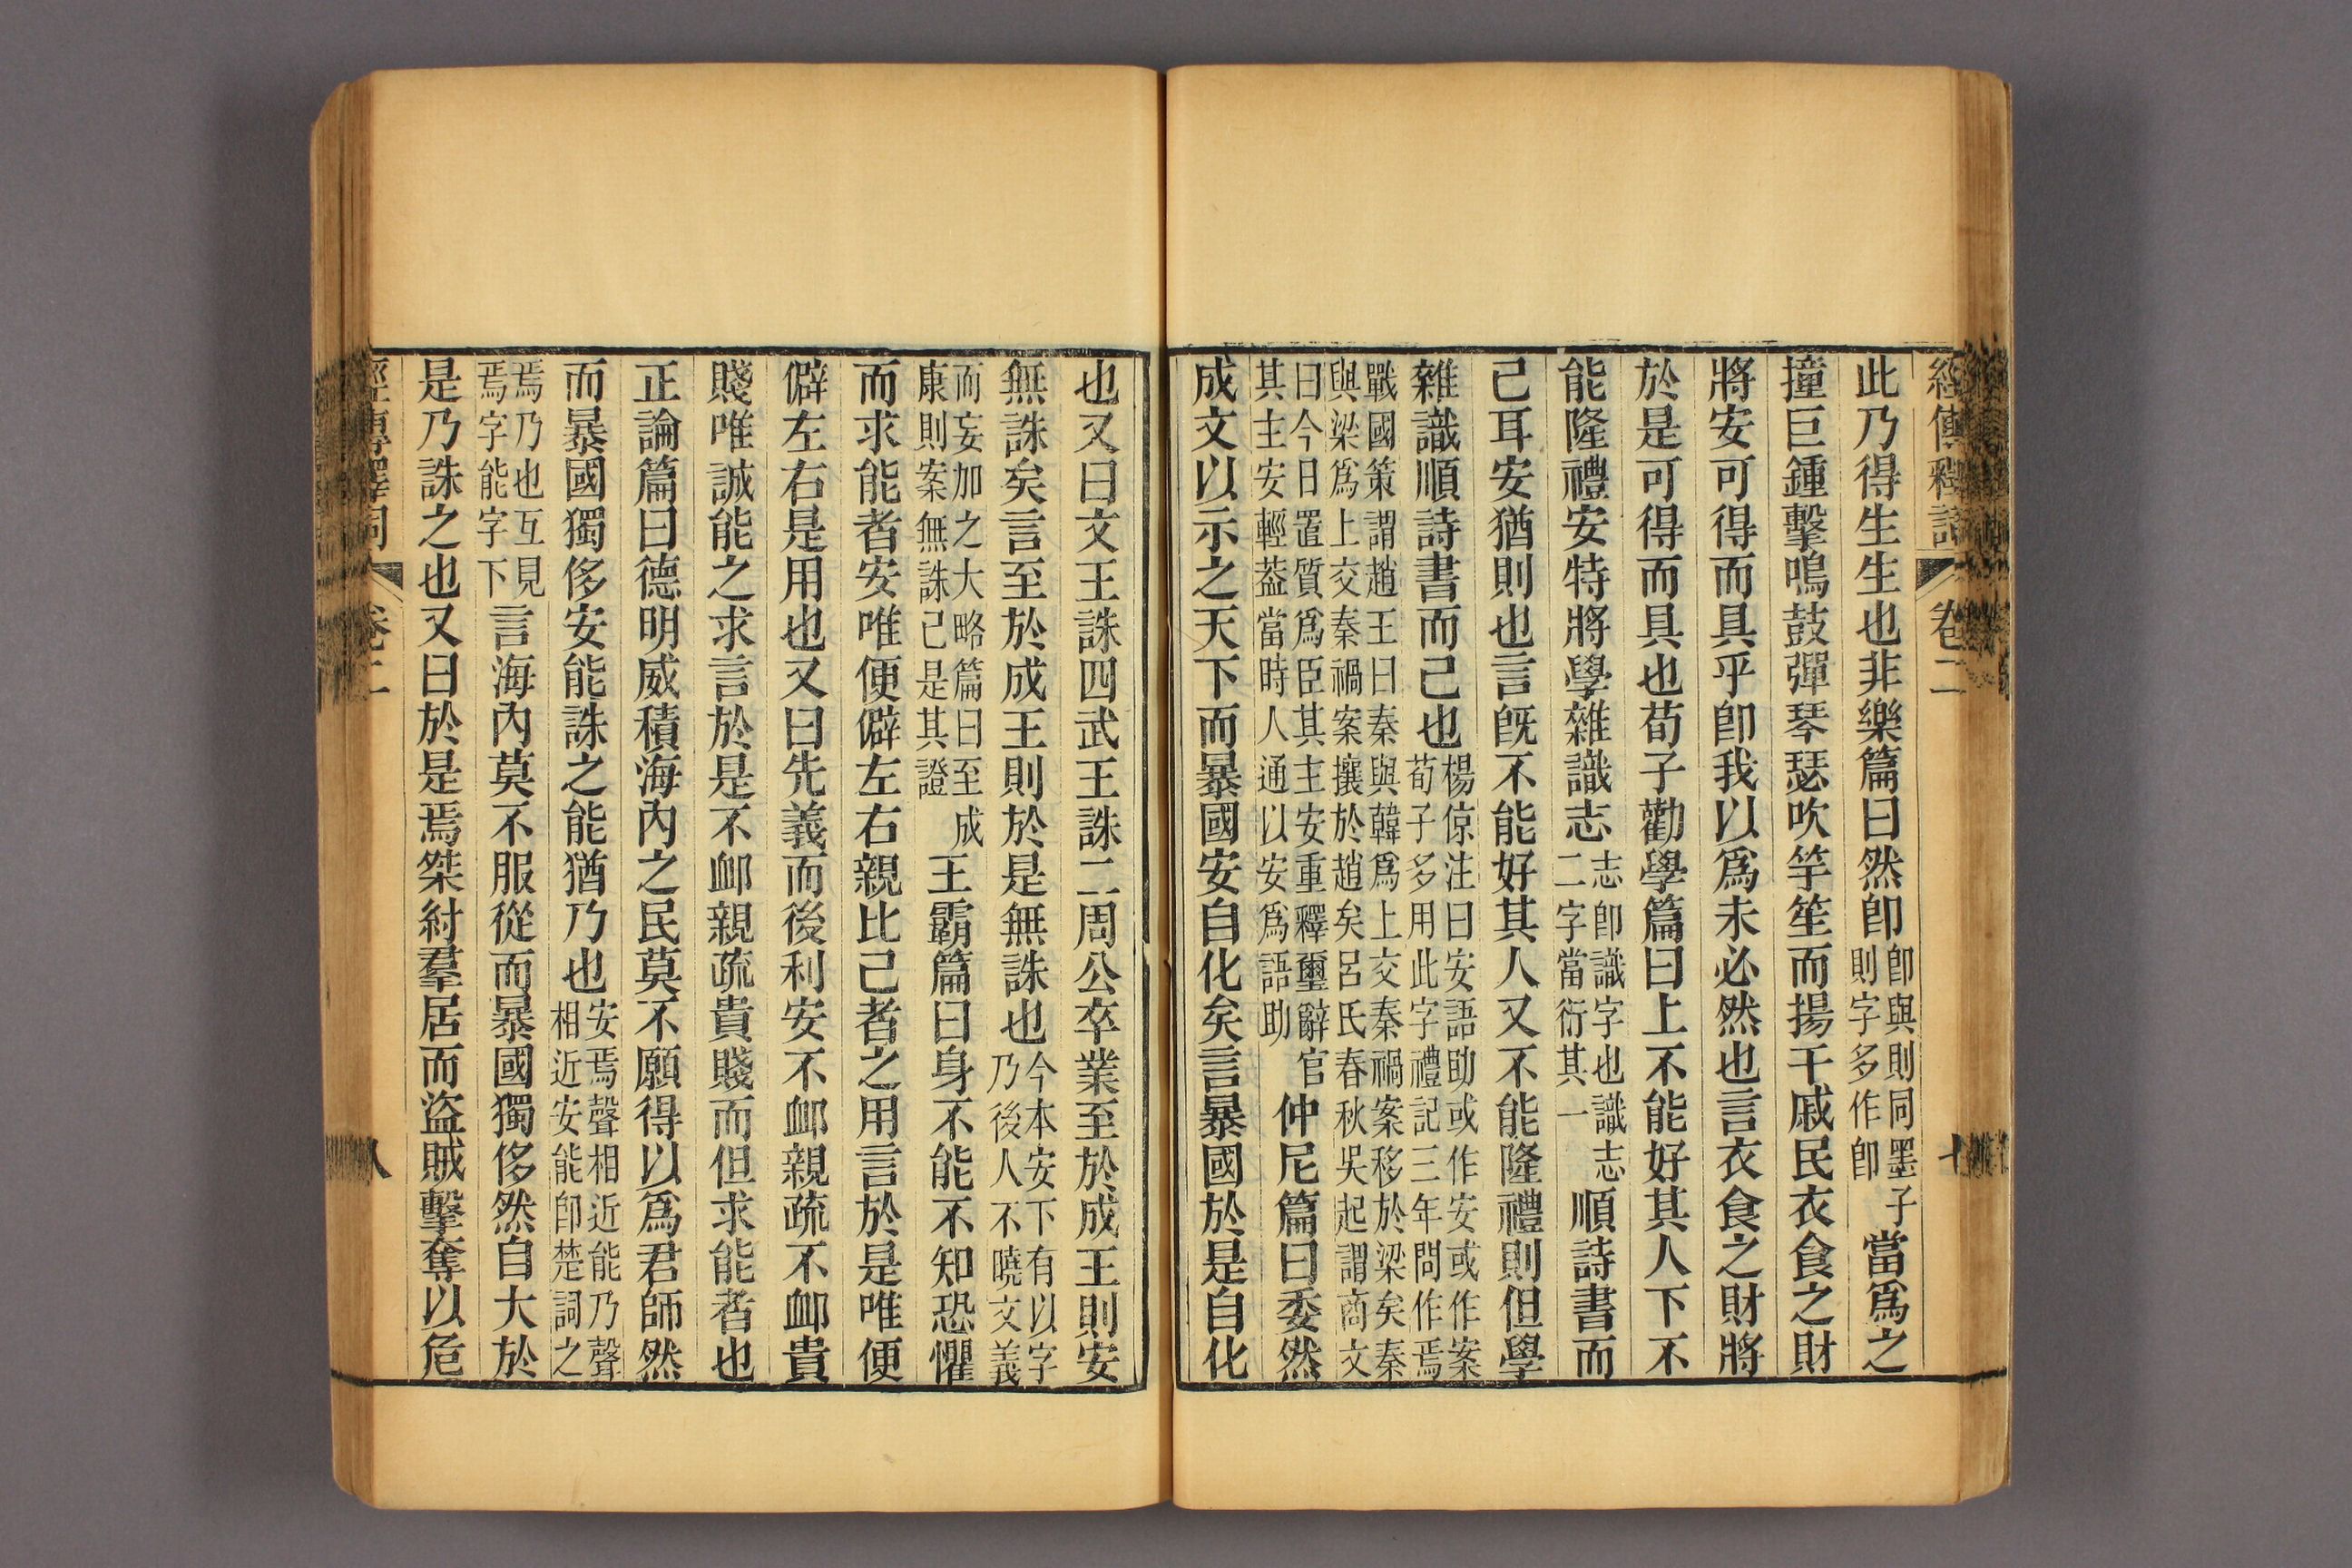 經傳釋詞 卷二
此乃得生生也非樂篇曰然卽卽與則同墨子則字多作卽當爲之
撞巨鍾擊鳴鼓彈琴瑟吹竽笙而揚干戚民衣食之財
將安可得而具乎卽我以爲未必然也言衣食之財將
於是可得而具也荀子勸學篇曰上不能好其人下不
能隆禮安特將學雜識志志卽識字也識志二字當衍其一順詩書而
己耳安猶則也言旣不能好其人又不能隆禮則但學
雜識順詩書而己也楊倞注曰安語助或作安或作案荀子多用此字禮記三年問作焉
戰國策謂趙王曰秦與韓爲上交秦禍案移於梁矣秦與梁爲上交秦禍案攘於趙矣呂氏春秋吳起謂商文
曰今日置質爲臣其主安重釋璽辭官其主安輕葢當時人通以安爲語助仲尼篇曰委然
成文以示之天下而暴國安自化矣言暴國於是自化
也又曰文王誅四武王誅二周公卒業至於成王則安
無誅矣言至於成王則於是無誅也今本安下有以字乃後人不曉文義
而妄加之大略篇曰至成康則案無誅己是其證王霸篇曰身不能不知恐懼
而求能者安唯便僻左右親比己者之用言於是唯便
僻左右是用也又曰先義而後利安不䘏親疏不䘏貴
賤唯誠能之求言於是不䘏親疏貴賤而但求能者也
正論篇曰德明威積海內之民莫不願得以爲君師然
而暴國獨侈安能誅之能猶乃也安焉聲相近能乃聲相近安能卽楚詞之
焉乃也互見焉字能字下言海內莫不服從而暴國獨侈然自大於
是乃誅之也又曰於是焉桀紂羣居而盜賊擊奪以危
經傳釋詞 卷二 八